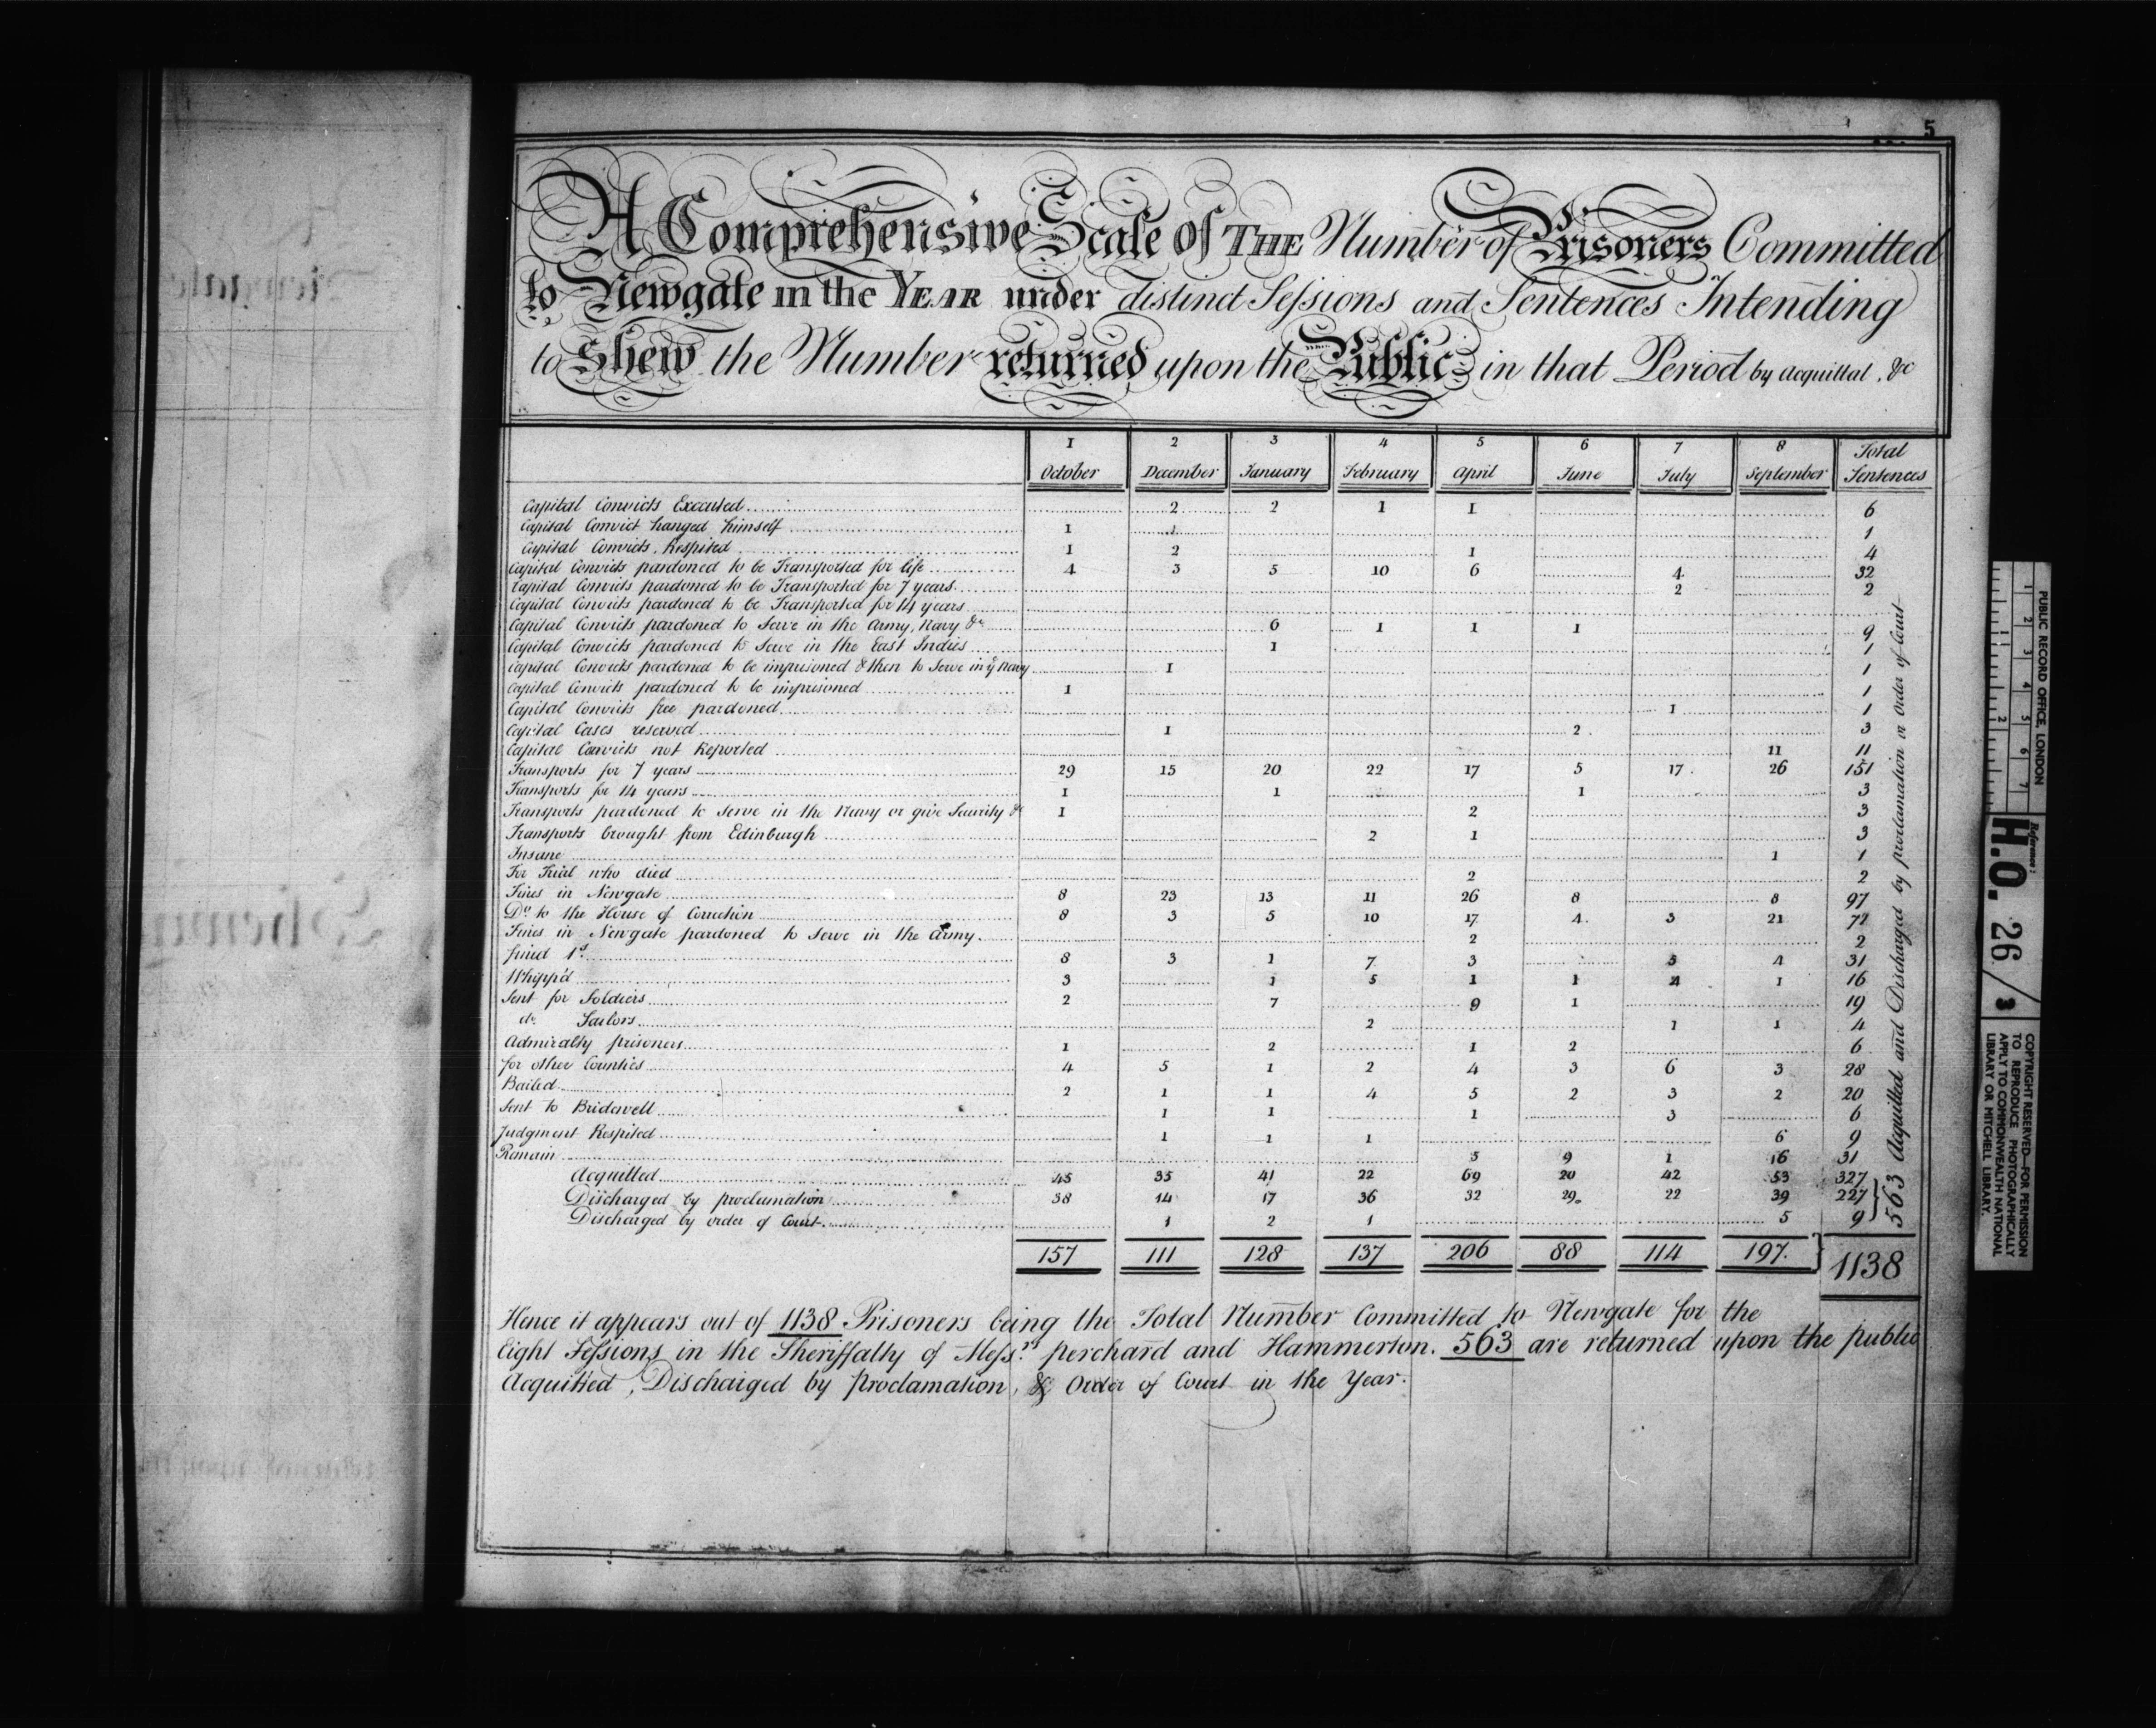 5
A Comprehensive Scale of THE Number of Prisoners Committed
to Newgate in the YEAR under distinct Sessions and Sentences Intending
to Shew the Number returned upon the Public in that Period by acquittal, &c
1 2 3 4 5 6 7 8 Total
October December January February April June July September Sentences
Capital Convicts Executed 2 2 1 1 6
Capital Convict hanged himself 1 1
Capital Convicts Respited 1 2 1 4
Capital Convicts pardoned to be Transported for life 4 3 5 10 6 4 32
Capital Convicts pardoned to be Transported for 7 years 2 2
Capital Convicts pardoned to be Transported for 14 years
Capital Convicts pardoned to Serve in the Army, Navy &c 6 1 1 1 9
Capital Convicts pardoned to Serve in the East Indies 1 1
Capital Convicts pardoned to be imprisoned & then to Serve in ye Navy 1 1
Capital Convicts pardoned to be imprisoned 1 1
Capital Convicts free pardoned 1 1
Capital Cases reserved 1 2 3
Capital Convicts not Reported 11 11
Transports for 7 years 29 15 20 22 17 5 17 26 151
Transports for 14 years 1 1 1 3
Transports pardoned to serve in the Navy or give Security &c 1 2 3
Transports brought from Edinburgh 2 1 3
Insane 1 1
For Trial who died 2 2
Fines in Newgate 8 23 13 11 26 8 8 97
Do. to the House of Correction 8 3 5 10 17 4 3 21 72
Fines in Newgate pardoned to serve in the Army 2 2
fined 1s. 8 3 1 7 3 5 4 31
Whipp'd 3 1 5 1 1 4 1 16
Sent for Soldiers 2 7 9 1 19
do. Sailors 2 1 1 4
Admiralty prisoners 1 2 1 2 6
for other Counties 4 5 1 2 4 3 6 3 28
Bailed 2 1 1 4 5 2 3 2 20
Sent to Bridewell 1 1 1 3 6
Judgment Respited 1 1 1 6 9
Remain 5 9 1 16 31
Acquitted 45 35 41 22 69 20 42 53 327
Discharged by proclamation 38 14 17 36 32 29 22 39 227
Discharged by order of Court 1 2 1 5 9
563 Acquitted and Discharged by proclamation or Order of Court
157 111 128 137 206 88 114 197. 1138
Hence it appears out of 1138 Prisoners being the Total Number Committed to Newgate for the
Eight Sessions in the Sheriffalty of Messrs. perchard and Hammerton. 563 are returned upon the public
Acquitted, Discharged by Proclamation, & Order of Court in the Year.
PUBLIC RECORD OFFICE, LONDON
1 2 3 4 5 6 7
1 2
Reference:
H.O. 26/3
COPYRIGHT RESERVED—FOR PERMISSION
TO REPRODUCE PHOTOGRAPHICALLY
APPLY TO COMMONWEALTH NATIONAL
LIBRARY OR MITCHELL LIBRARY.